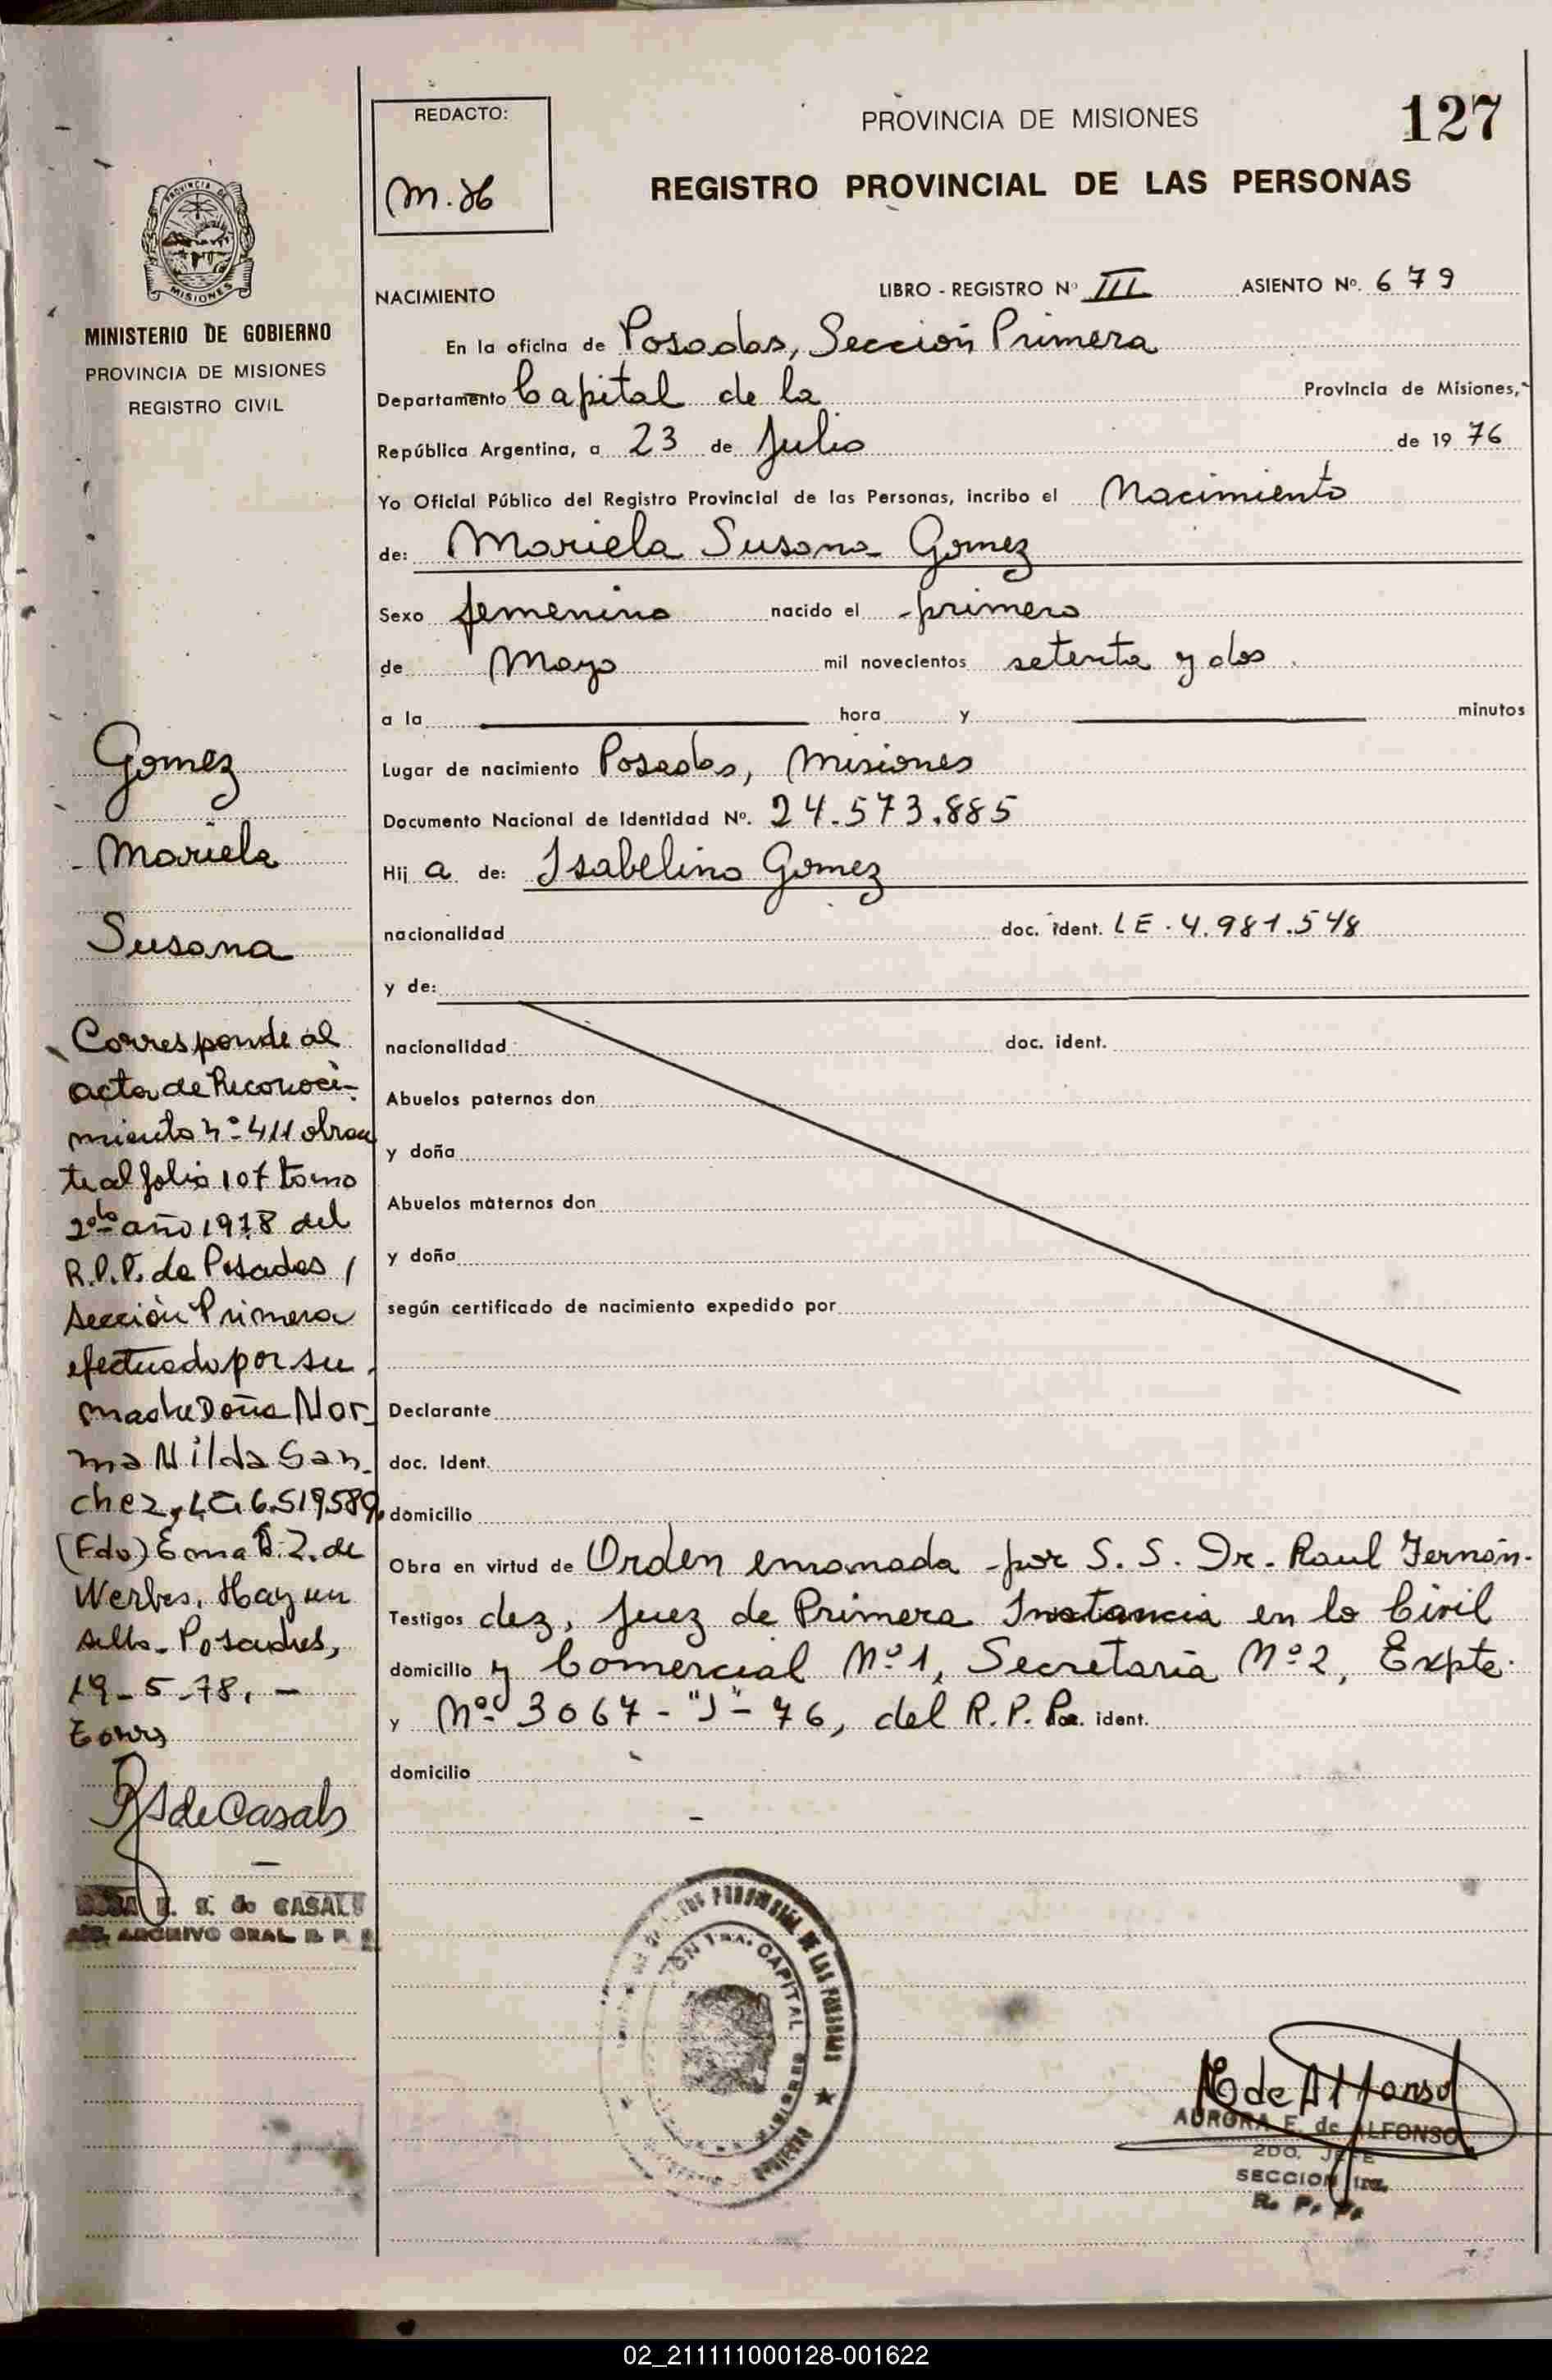 127
REDACTO:
M.H
PROVINCIA DE MISIONES
REGISTRO PROVINCIAL DE LAS PERSONAS
PROVINCIA DE
MISIONES
MINISTERIO DE GOBIERNO
PROVINCIA DE MISIONES
REGISTRO CIVIL
NACIMIENTO LIBRO - REGISTRO Nº III ASIENTO Nº. 679
En la oficina de Posadas, Sección Primera
Departamento Capital de la Provincia de Misiones,
República Argentina, a 23 de Julio de 1976
Yo Oficial Público del Registro Provincial de las Personas, incribo el Nacimiento
de: Mariela Susana Gomez
Sexo femenino nacido el primero
de Mayo mil novecientos setenta y dos
a la hora y minutos
Lugar de nacimiento Posadas, Misiones
Documento Nacional de Identidad Nº. 24.573.885
Hij a de: Isabelino Gomez
nacionalidad doc. ident. LE. 4.981.548
y de:
nacionalidad doc. ident.
Abuelos paternos don
y doña
Abuelos maternos don
y doña
según certificado de nacimiento expedido por
Declarante
doc. Ident.
domicilio
Obra en virtud de Orden emanada por S. S. Dr. Raul Fernán-
Testigos dez, Juez de Primera Instancia en lo Civil
domicilio y Comercial Nº 1, Secretaría Nº 2, Expte.
y Nº 3067-"J"-76, del R. P. P. ident.
domicilio
Gomez
Mariela
Susana
Corresponde al
acta de Reconoci-
miento nº 411 obran
te al folio 107 tomo
2do año 1978 del
R.P.P. de Posadas
Sección Primera
efectuado por su
madre Doña Nor-
ma Nilda San-
chez, LC. 6.519589,
(Fdo) Ema Z. de
Werbes. Hay un
sello. Posadas,
19-5-78. -
RS de Casals
ROSA E. S. de CASALS
ARCHIVO GRAL R. P. P.
PROVINCIAL DE LAS PERSONAS
CAPITAL
AE de Alfonso
AURORA E. de ALFONSO
2DO. JEFE
SECCION 1ra.
R. P. P.
02_211111000128-001622